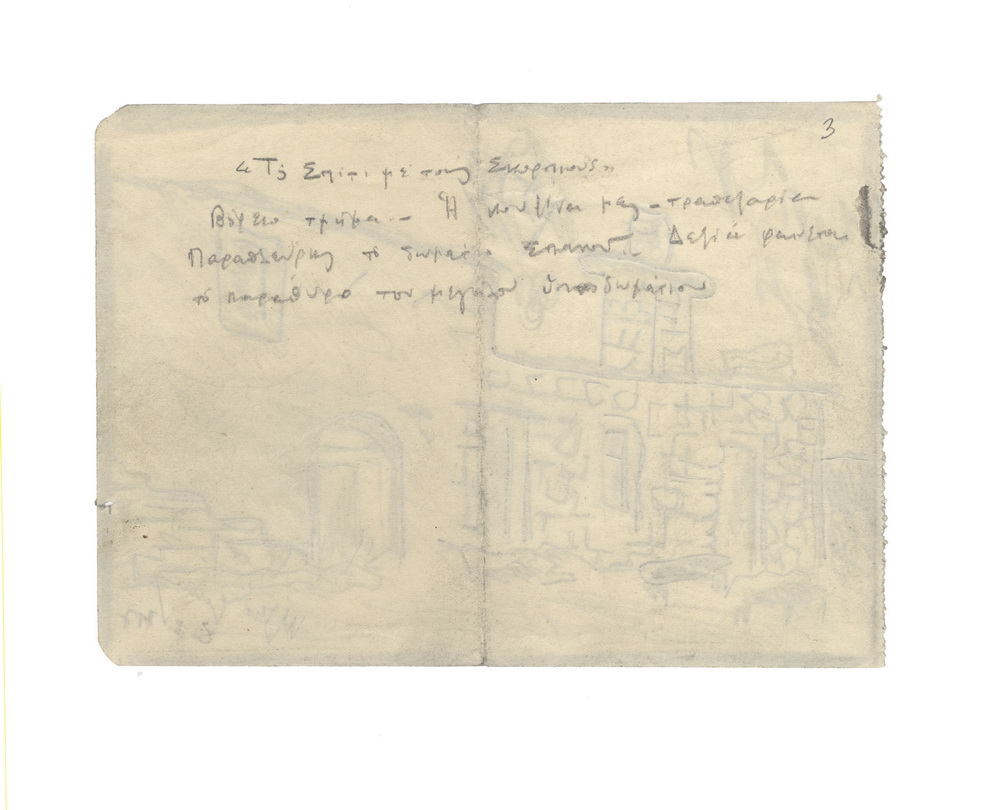 3
«Τὸ Σπίτι μὲ τοὺς Σκορπιούς»
Βόρειο τμῆμα.- Ἡ κουζίνα μας - τραπεζαρία
Παραπλεύρως τὸ δωμάτιο Δεξιὰ φαίνεται
τὸ παράθυρο τοῦ μεγάλου ὑπνοδωμάτιου